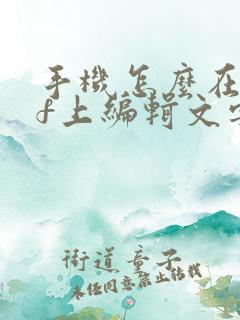 手機怎麼在
f上編輯文字
街道童子
未经同意禁止转载